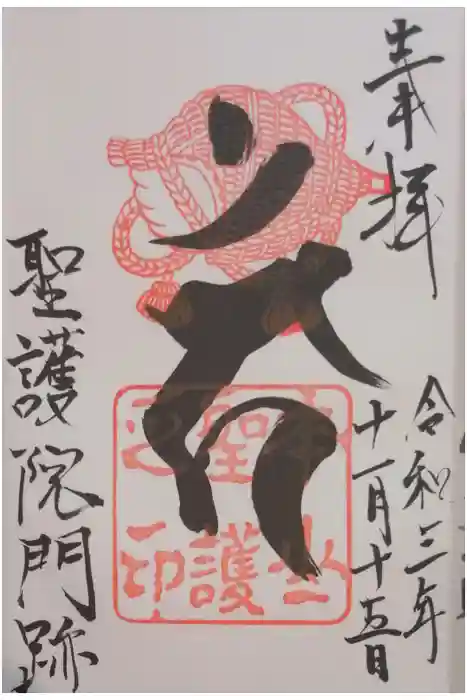 奉拝
令和三年
十一月十五日
本山
聖護
之印
聖護院門跡